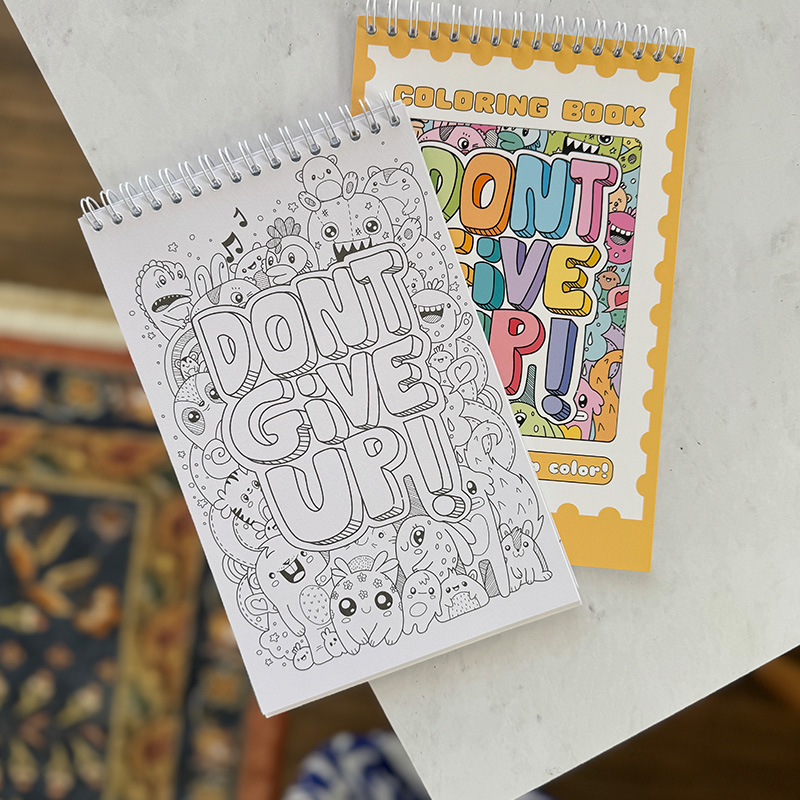 COLORING BOOK
DONT
GIVE
UP!
color!
DONT
GiVE
UP!